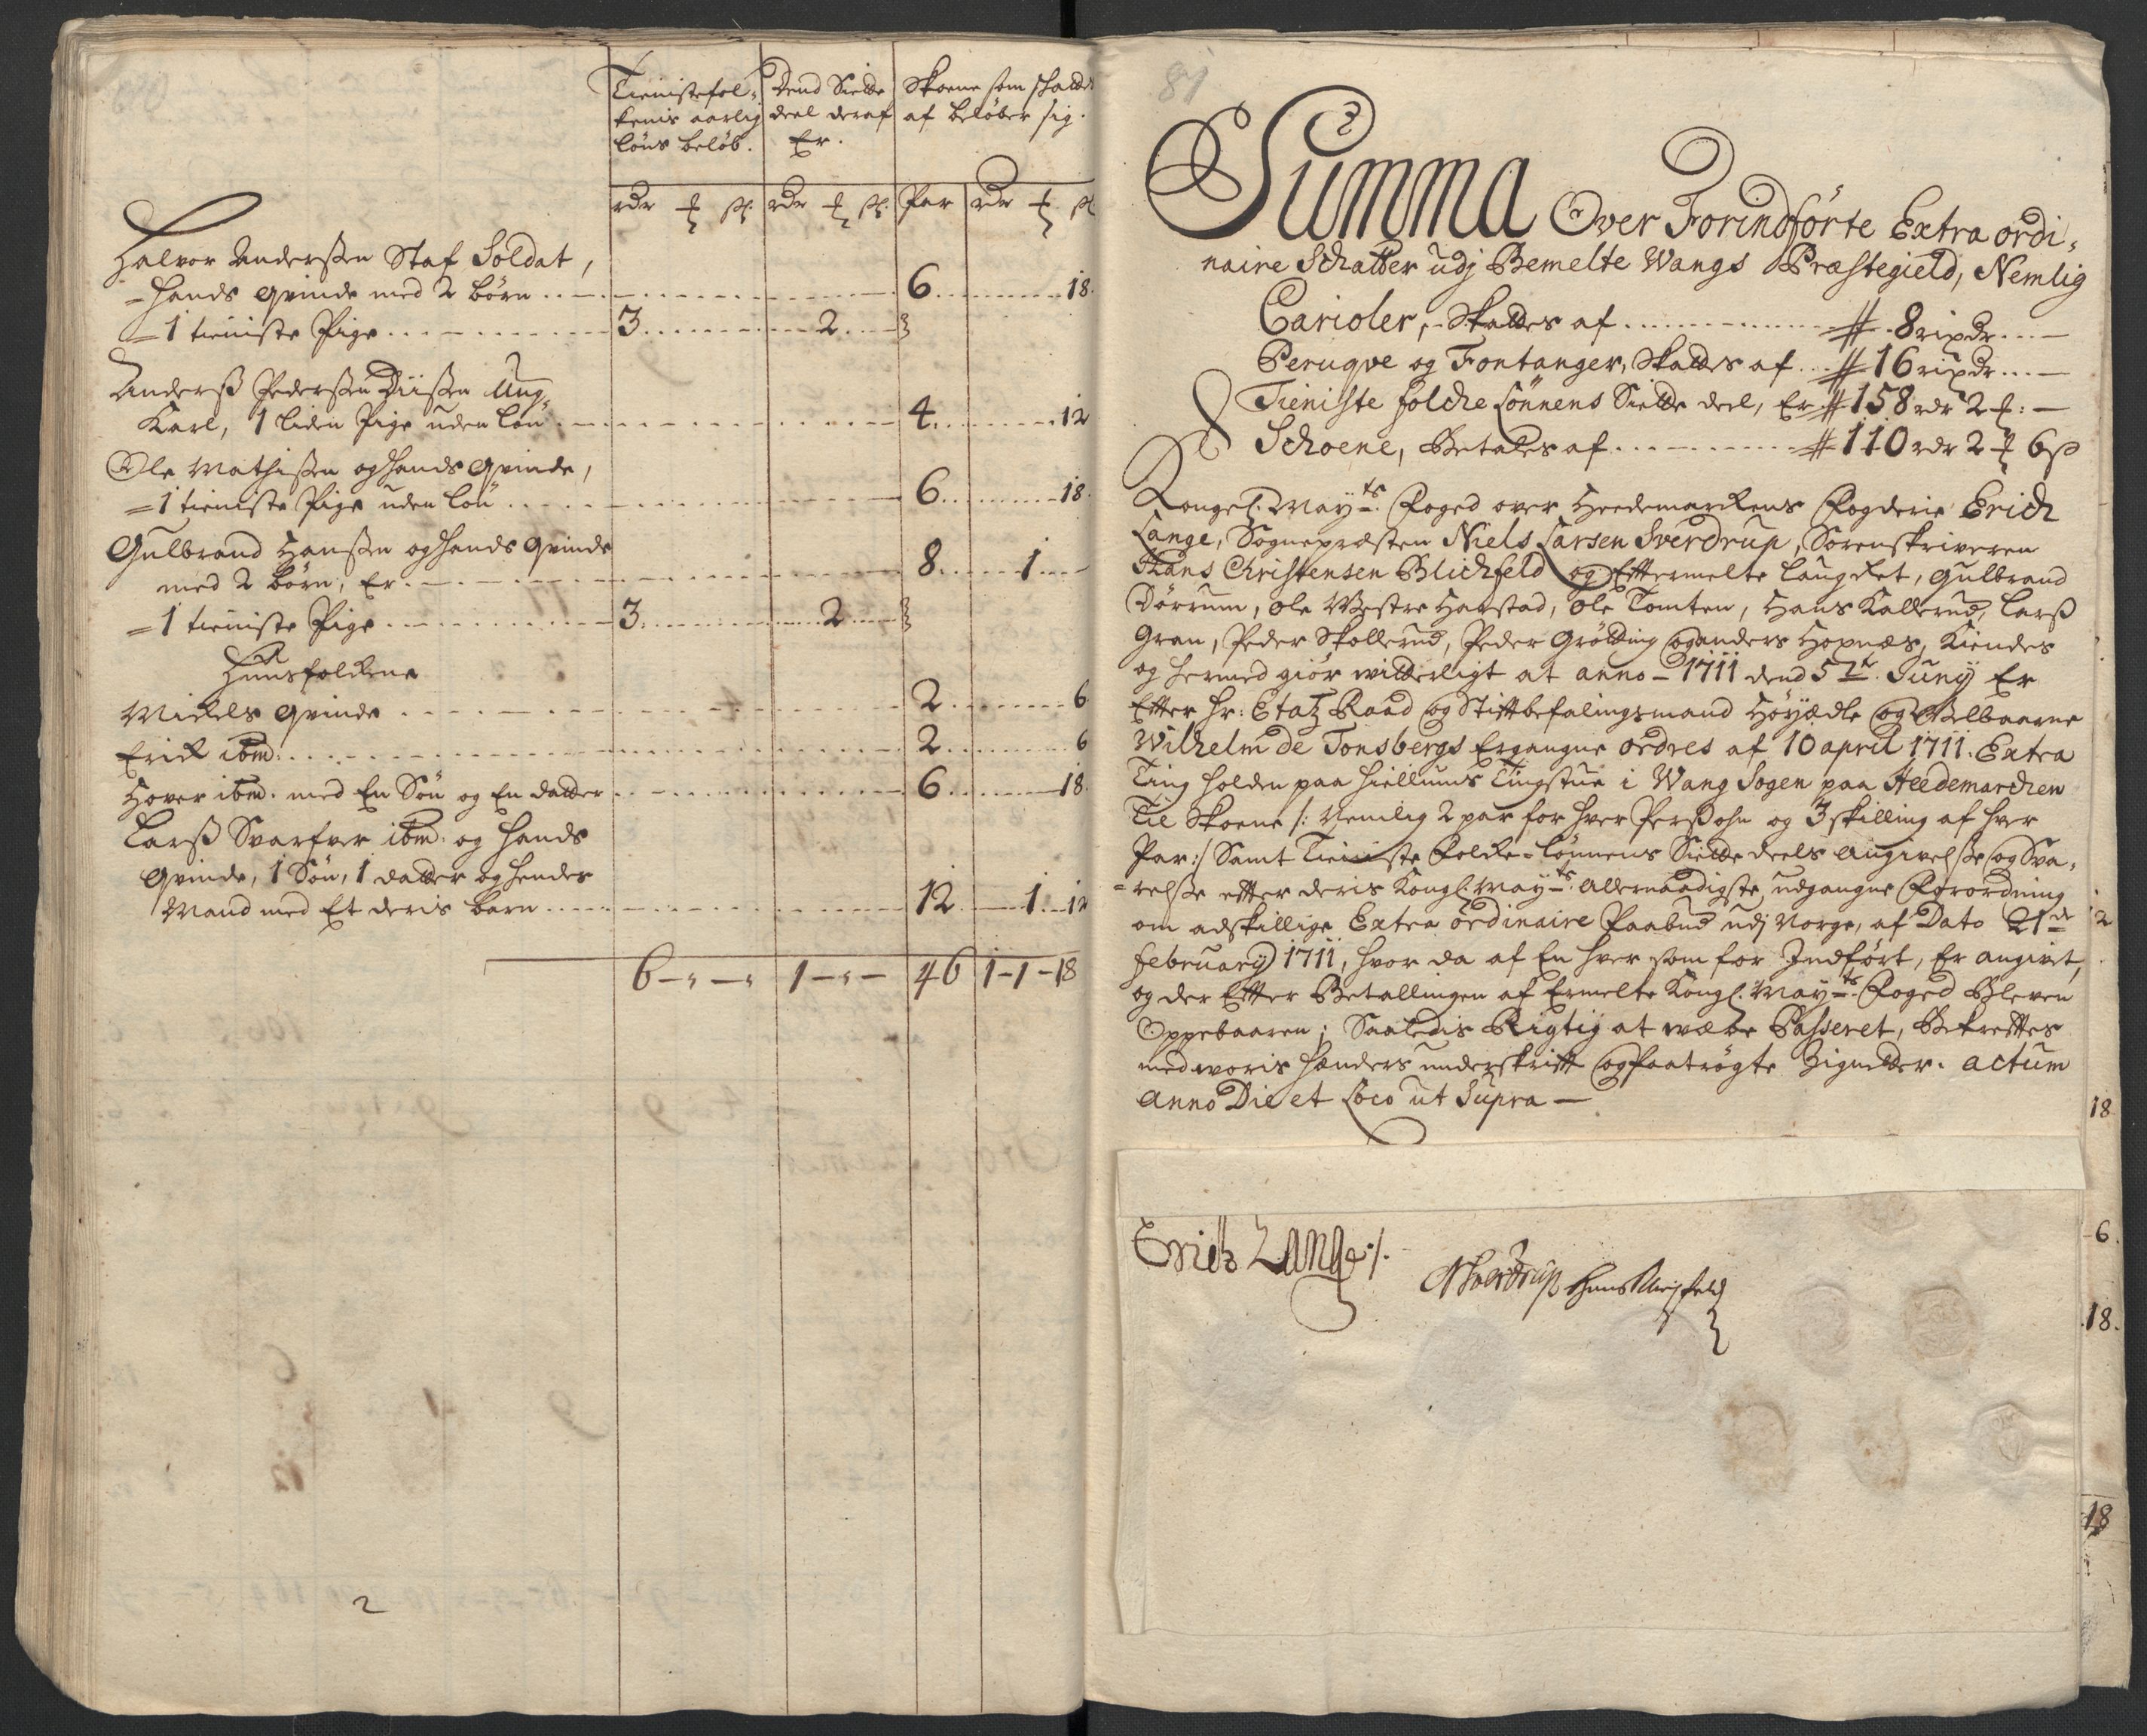 Tienistefol-
kenis aarlig
löns beløb.
Dend Siette
deel deraf
Er.
Skoene som schattes
af beløber sig.
rdr ß rdr ß Par rdr ß
Halvor Anderßen Staf Soldat,
- hands qvinde med 2 börn 6 18.
- 1 tieniste Pige 3 2
Anderß Pederßen Ung-
Karl, 1 liden Pige uden lön 4 12
Ole Mathisen og hands qvinde,
= 1 tieniste Pige uden lön 6 18.
Gulbrand Hanßen og hands qvinde
med 2 börn, Er 8 1
= 1 tieniste Pige 3 2
Huusfolckene
Mickels qvinde 2 6
Erick ibm: 2 6
Hover ibm. med En Sön og En datter 6 18.
Larß Svarfver ibm: og hands
qvinde, 1 Sön, 1 datter og hendes
Mand med Et deris barn 12 1 12
6 - - 1 - - 46 1-1-18
2
81
Summa Over Forindförte Extra ordi-
naire Schatter udj Bemelte Wangs Præstegield, Nemlig
Carioler, Skattes af 8 rixdr
Peruqve og Fontanger, Skattes af 16 rixdr
Tieniste folche Lönnens Siette deel, Er 158 rdr 2
Schoene, Betales af 110 rdr 2 6 ß
Kongel. Mayts. Foged over Heedemarckens Fogderie Erich
Lange, Sognepræsten Niels Larsen Sverdrup, Sorenskriveren
Hans Christensen Blichfeld og Eftermelte Laugret, Gulbrand
Dörrum, Ole Westre Harstad, Ole Tomten, Hans Kallerud, Larß
Gran, Peder Skollerud, Peder Grötting og Anders Hopnæs, Kiendes
og hermed giör witterligt at anno 1711 dend 5te Juny Er
Efter Hr: Etatz Raad og Stiftbefalingsmand Höyædle og Welbaarne
Wilhelm de Tonsbergs Ergangne Ordres af 10 april 1711. Extra
Ting holden paa Hiellums Tingstue i Wang Sogen paa Heedemarchen
Til Skoene /: Nemlig 2 par for hver Perßohn og 3 skilling af hver
Par:/ Samt Tieniste Folche-Lönnens Siette deels Angivelße og Sva-
=relße efter deris Kongl. Mayts. Allernaadigste udgangne Forordning
om adskillige Extra ordinaire Paabud udj Norge, af Dato 21de
February 1711, hvor da af En hver som for Indfört, Er angivet,
og der Efter Betallingen af Ermelte Kongl. Mayts. Foged Bleven
Oppebaaren; Saaledis Rigtig at være Passeret, Bekreftes
med woris hænders underskrift og hoströgte Zignetter. Actum
Anno Die et Loco ut Supra
Erich Lange
NSverdrup Hans Blichfeld
12
18
6.
18.
18